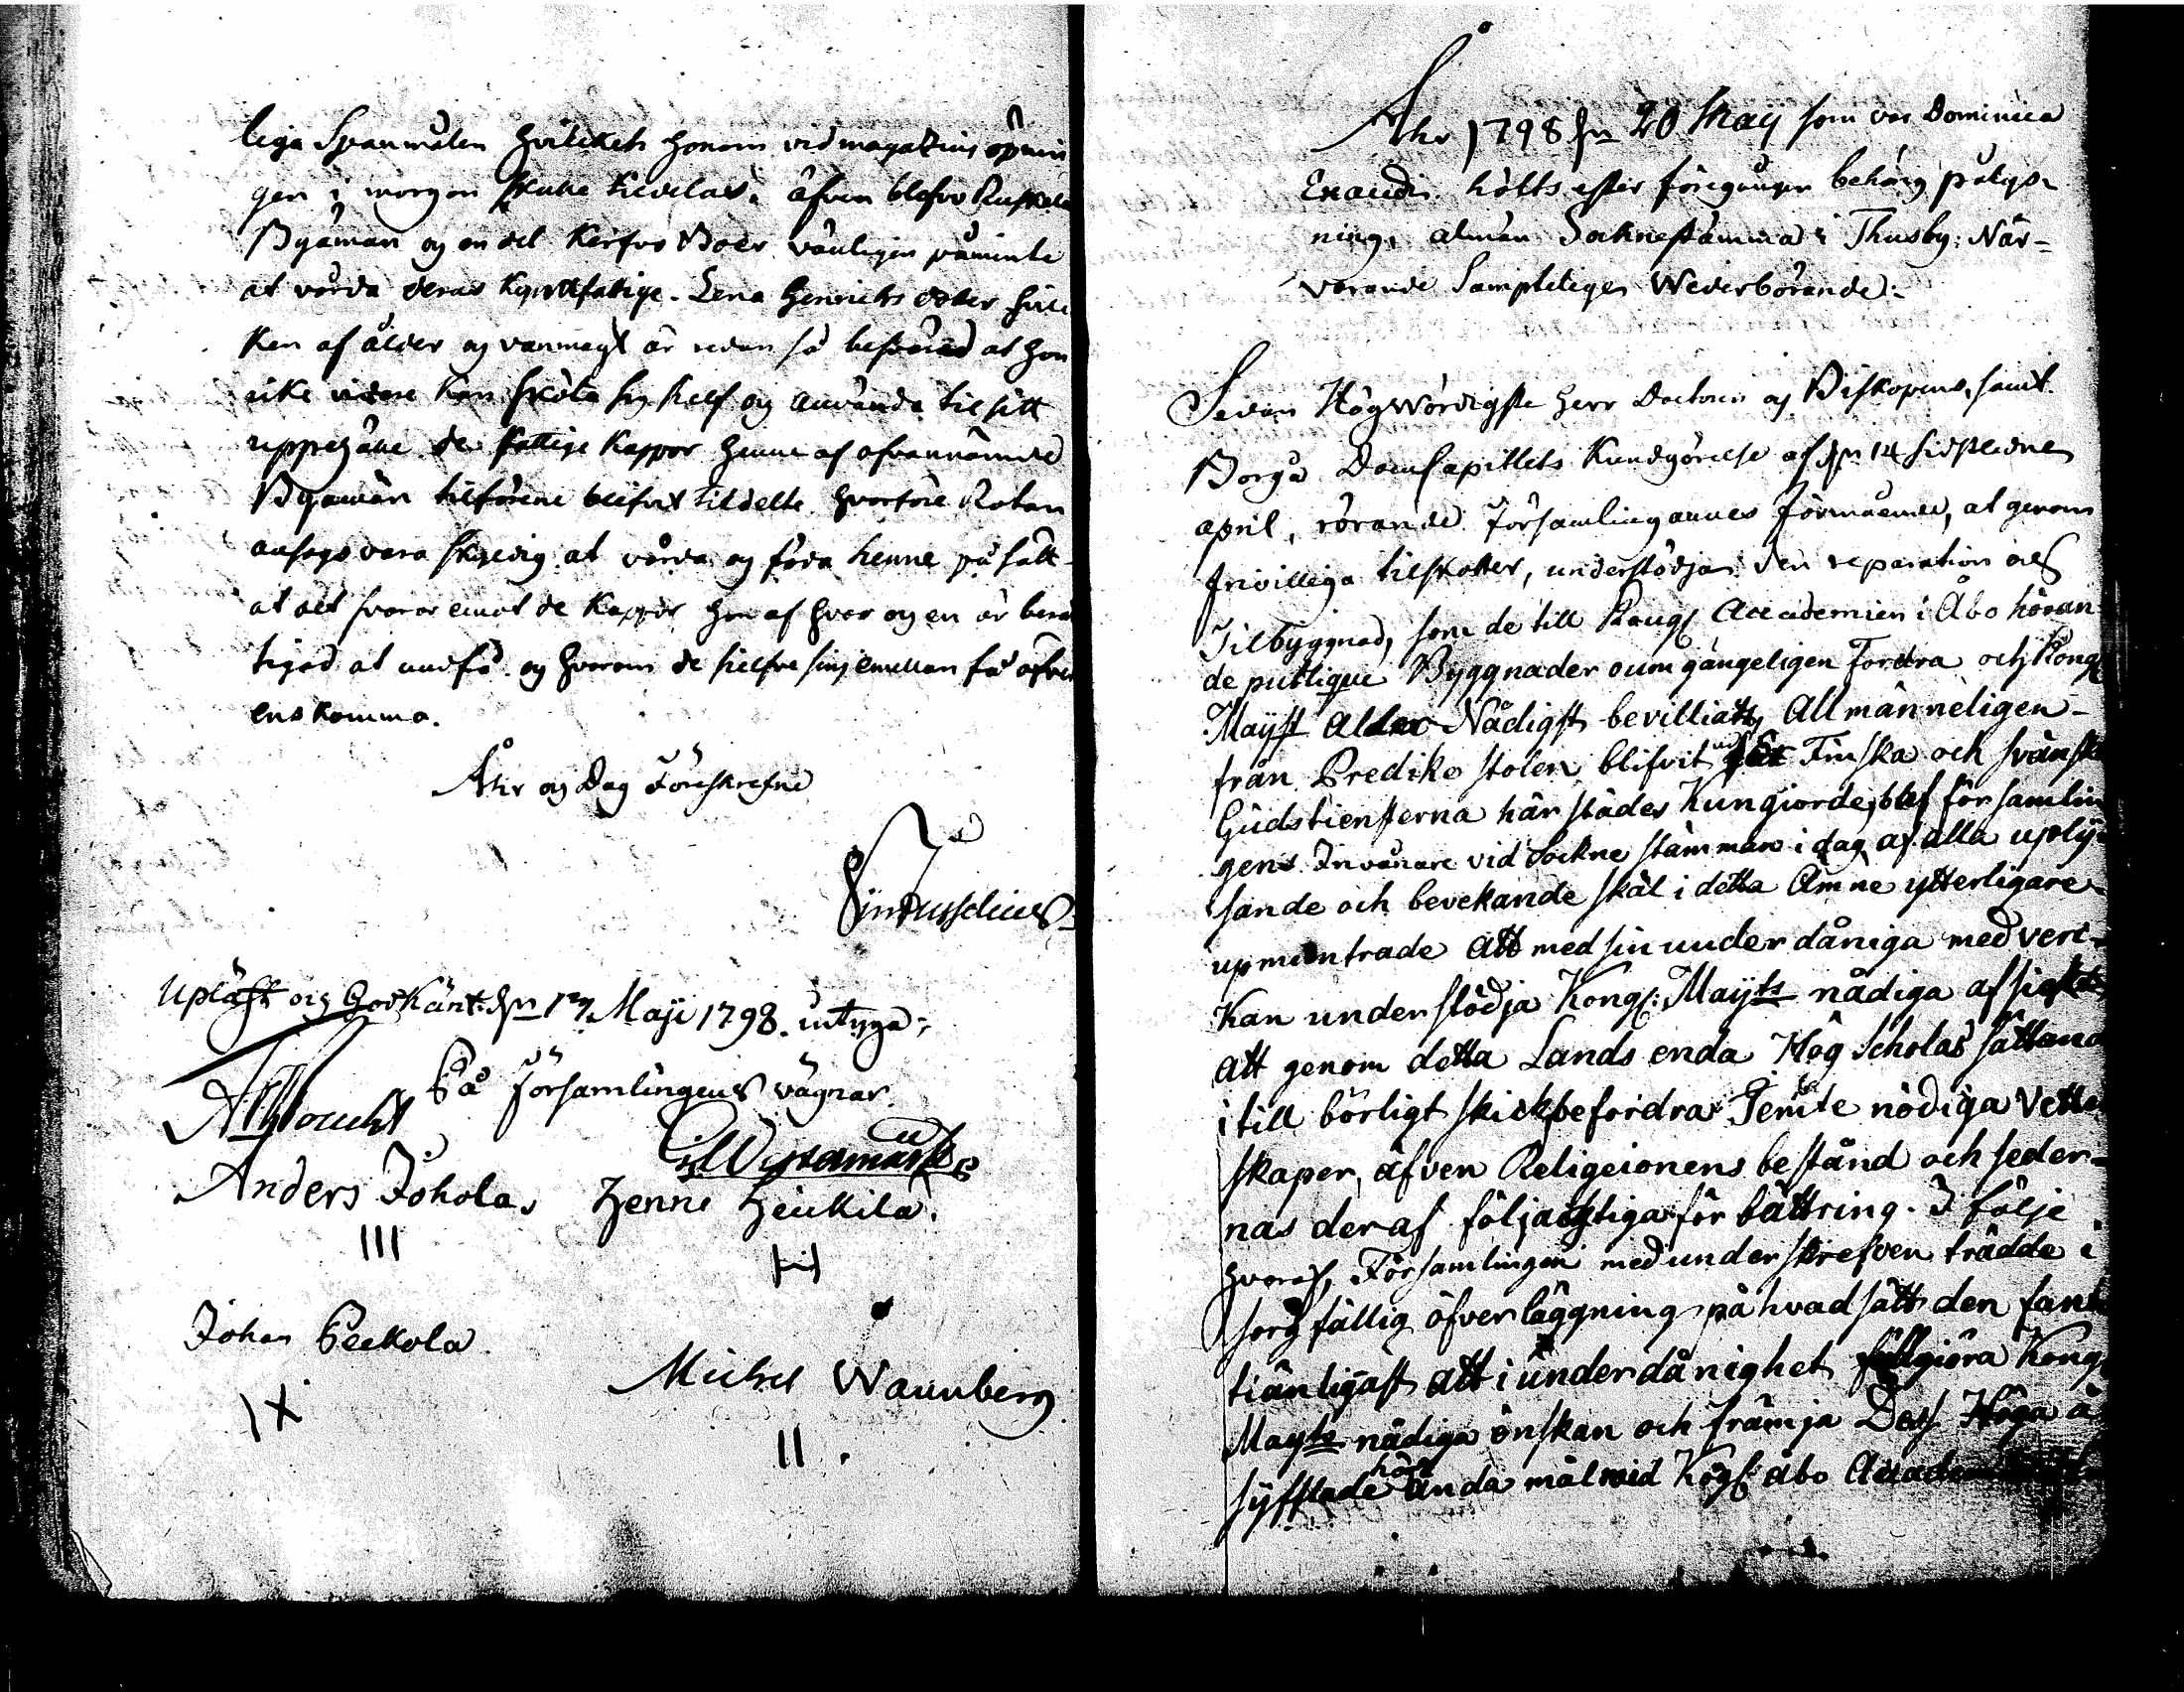 lige Spanmålen hvilcket honom vid magazins öpnin
gen i morgon skulle tildelas. äfven blefvo Ruskela
Byamän og en del Kerfvo Boer vänligen påminte
at vårda deras Kyrckfattige. Lena Henrichs dotter hvil
ken af ålder og vanmagt är redan så beskaffad at hon
icke vidare kan sköta sig sielf og använda til sitt
uppehälle de fattige Kappor henne af ofvannämde
Byamän tilförene blifvit tildelte hvarföre Rotan
ansågs vara skyldig at vårda og föda henne på sätt
at det svarar emot de Kappor hon af hvar og en är berät
tigad at undfå og hvarom de sielfve sins emellan få öfver
enskomma.
Åhr og Dag Föreskrefne
Upläst och Godkänt. dn 17 Maji 1798. intyga;
På Församlingens vägnar.
Anders Johola, Henne Heickilä.
III
Johan Peckola
IX
Michel Wannberg
II.
Åhr 1798 dn 20 Maij som var Dominica
Exaudi hölts efter föregången behörig pålys-
ning, alman Sockne stämma i Thusby. När-
varande Samptelige Wederbörande:
Sedan Högwördigste Herr Doctorn og Biskopens, samt
Borgå DomCapitlets Kundgörelse af dn 14 sidstledne
april, rörande Församlingarnes förmående, at genom
frivilliga tilskotter, understödja den reparation och
Tilbyggnad, som de till Kongl Accademien i Åbo höran
de publique Byggnader oumgängeligen Fordra och Kongl
Mayst aldra Nådigst bevilliatt, Allmänneligen
från Predike stolen blifvit Finska och svänska
Gudstiensterna här städes Kungiorde, blef församlin
gens Invånare vid Sockne stämman i dag af alla uply-
sande och bevekande skäl i detta Ämne ytterligare
upmuntrade att med sin underdåniga medver-
kan understödja Kongl: Mayts nådiga afsigter
att genom detta Lands enda Hög Scholas sättand
i till börligt skick befordra Jemte nödiga vetten
skaper, äfven Religeionens bestånd och seder-
nas deraf följacktiga för bättring. I följe
hvaraf, Församlingen med underskrefven trädde i
sorgfällig öfverläggning på hvad sätt den fant
tiänligast att i underdånighet fullgiöra Kongl
Mayts nådiga önskan och främja Dess Höga å
syfftade ända mål wid Kögl: Åbo